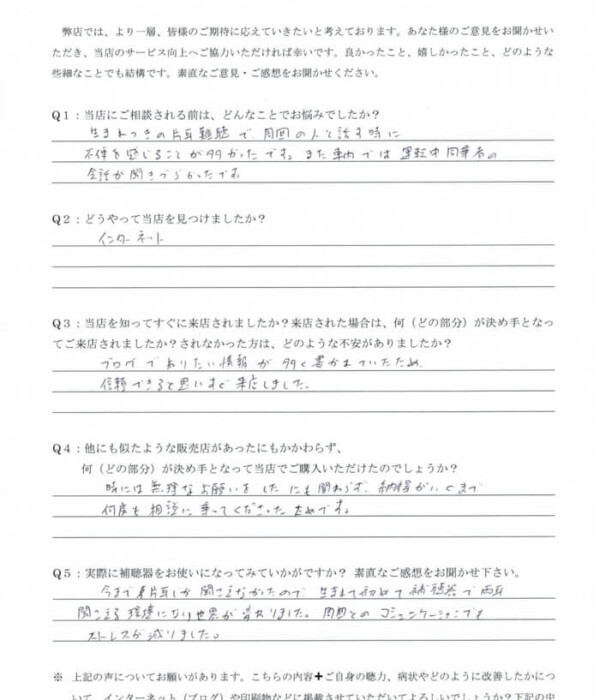 弊店では、より一層、皆様のご期待に応えていきたいと考えております。あなた様のご意見をお聞かせい
ただき、当店のサービス向上へご協力いただければ幸いです。良かったこと、嬉しかったこと、どのような
些細なことでも結構です。素直なご意見・ご感想をお聞かせください。
Q1：当店にご相談される前は、どんなことでお悩みでしたか？
生まれつきの片耳難聴で、周囲の人と話す時に
不便を感じることが多かったです。また車内では運転中同乗者の
会話が聞きづらかったです
Q2：どうやって当店を見つけましたか？
インターネット
Q3：当店を知ってすぐに来店されましたか？来店された場合は、何（どの部分）が決め手となっ
てご来店されましたか？されなかった方は、どのような不安がありましたか？
ブログでありたい情報が多く書かれていたため、
信頼できると思いすぐ来店しました。
Q4：他にも似たような販売店があったにもかかわらず、
何（どの部分）が決め手となって当店でご購入いただけたのでしょうか？
時には無理なお願いをしたにも関わらず、納得がいくまで
何度も相談に乗ってくださったためです。
Q5：実際に補聴器をお使いになってみていかがですか？ 素直なご感想をお聞かせ下さい。
今まで片耳しか聞こえなかったので生まれて初めて補聴器で両耳
聞こえる環境になり世界が変わりました。周囲とのコミュニケーションでも
ストレスが減りました。
※ 上記の声についてお願いがあります。こちらの内容＋ご自身の聴力、病状やどのように改善したかにつ
いて、インターネット（ブログ）や印刷物などに掲載させていただいてよろしいでしょうか？下記の中